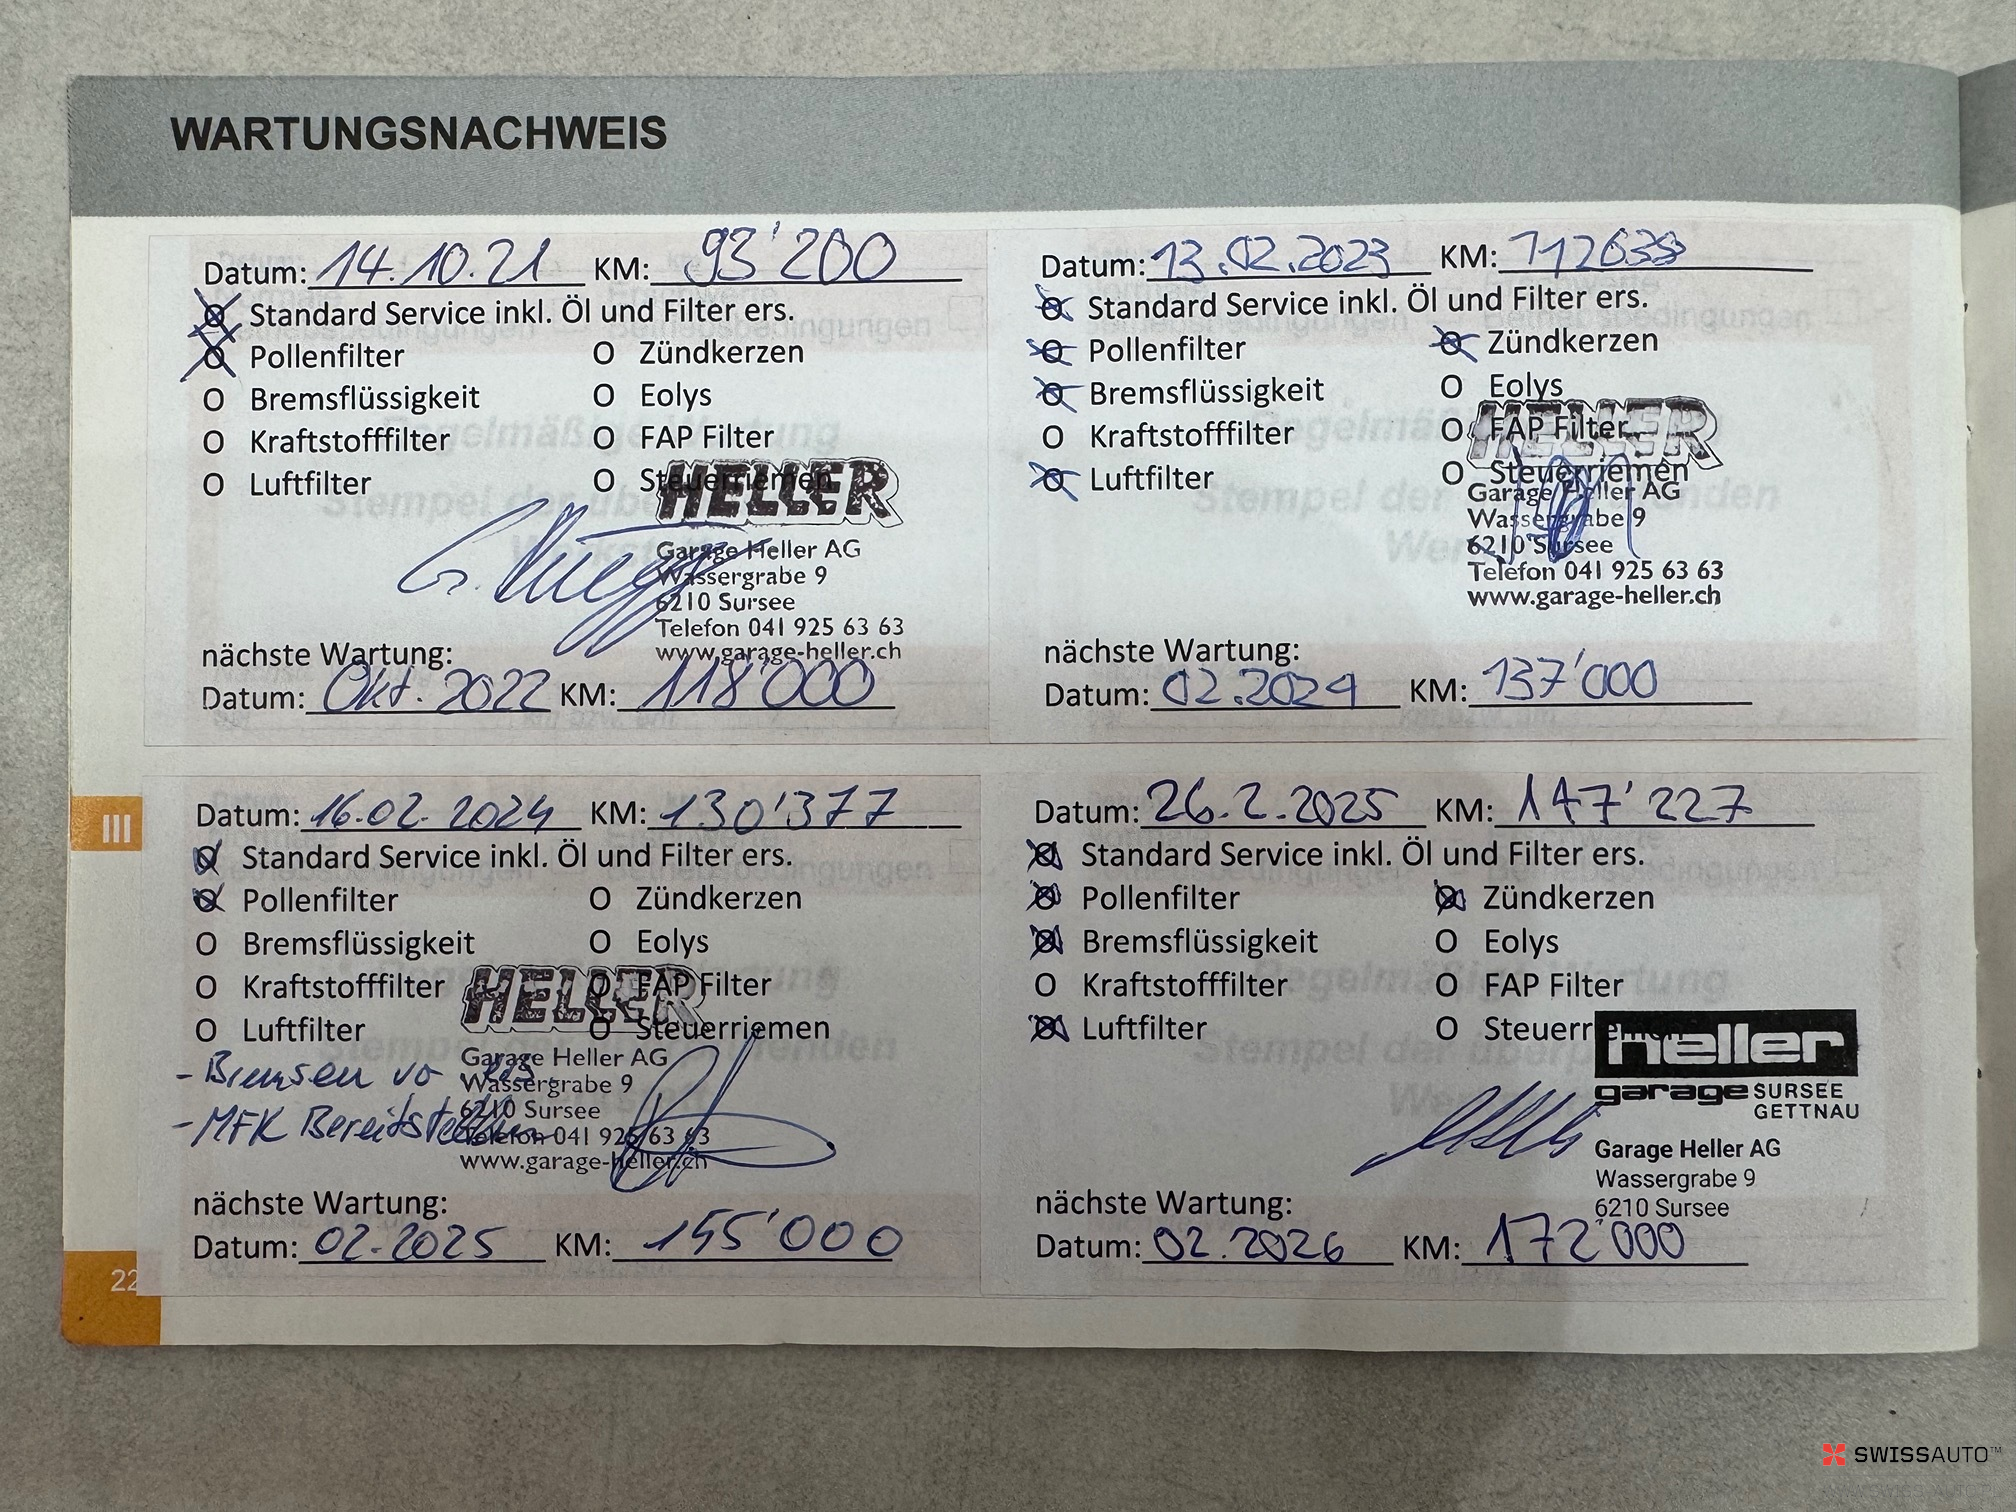 WARTUNGSNACHWEIS
Datum: 14.10.21 KM: 93'200
Standard Service inkl. Öl und Filter ers.
Pollenfilter O Zündkerzen
O Bremsflüssigkeit O Eolys
O Kraftstofffilter O FAP Filter
O Luftfilter O Steuerriemen
HELLER
Garage Heller AG
Wassergrabe 9
6210 Sursee
Telefon 041 925 63 63
www.garage-heller.ch
nächste Wartung:
Datum: Okt. 2022 KM: 118'000
Datum: 13.02.2023 KM: 112638
Standard Service inkl. Öl und Filter ers.
Pollenfilter Zündkerzen
Bremsflüssigkeit O Eolys
O Kraftstofffilter O FAP Filter
Luftfilter O Steuerriemen
HELLER
Garage Heller AG
Wassergrabe 9
6210 Sursee
Telefon 041 925 63 63
www.garage-heller.ch
nächste Wartung:
Datum: 02.2024 KM: 137'000
III
Datum: 16.02.2024 KM: 130'377
Standard Service inkl. Öl und Filter ers.
Pollenfilter O Zündkerzen
O Bremsflüssigkeit O Eolys
O Kraftstofffilter O FAP Filter
O Luftfilter O Steuerriemen
- Bremsen vo ers.
- MFK Bereitstellen
HELLER
Garage Heller AG
Wassergrabe 9
6210 Sursee
Telefon 041 925 63 63
www.garage-heller.ch
nächste Wartung:
Datum: 02.2025 KM: 155'000
Datum: 26.2.2025 KM: 147'227
Standard Service inkl. Öl und Filter ers.
Pollenfilter Zündkerzen
Bremsflüssigkeit O Eolys
O Kraftstofffilter O FAP Filter
Luftfilter O Steuerriemen
heller
garage SURSEE
GETTNAU
Garage Heller AG
Wassergrabe 9
6210 Sursee
nächste Wartung:
Datum: 02.2026 KM: 172'000
22
SWISSAUTO™